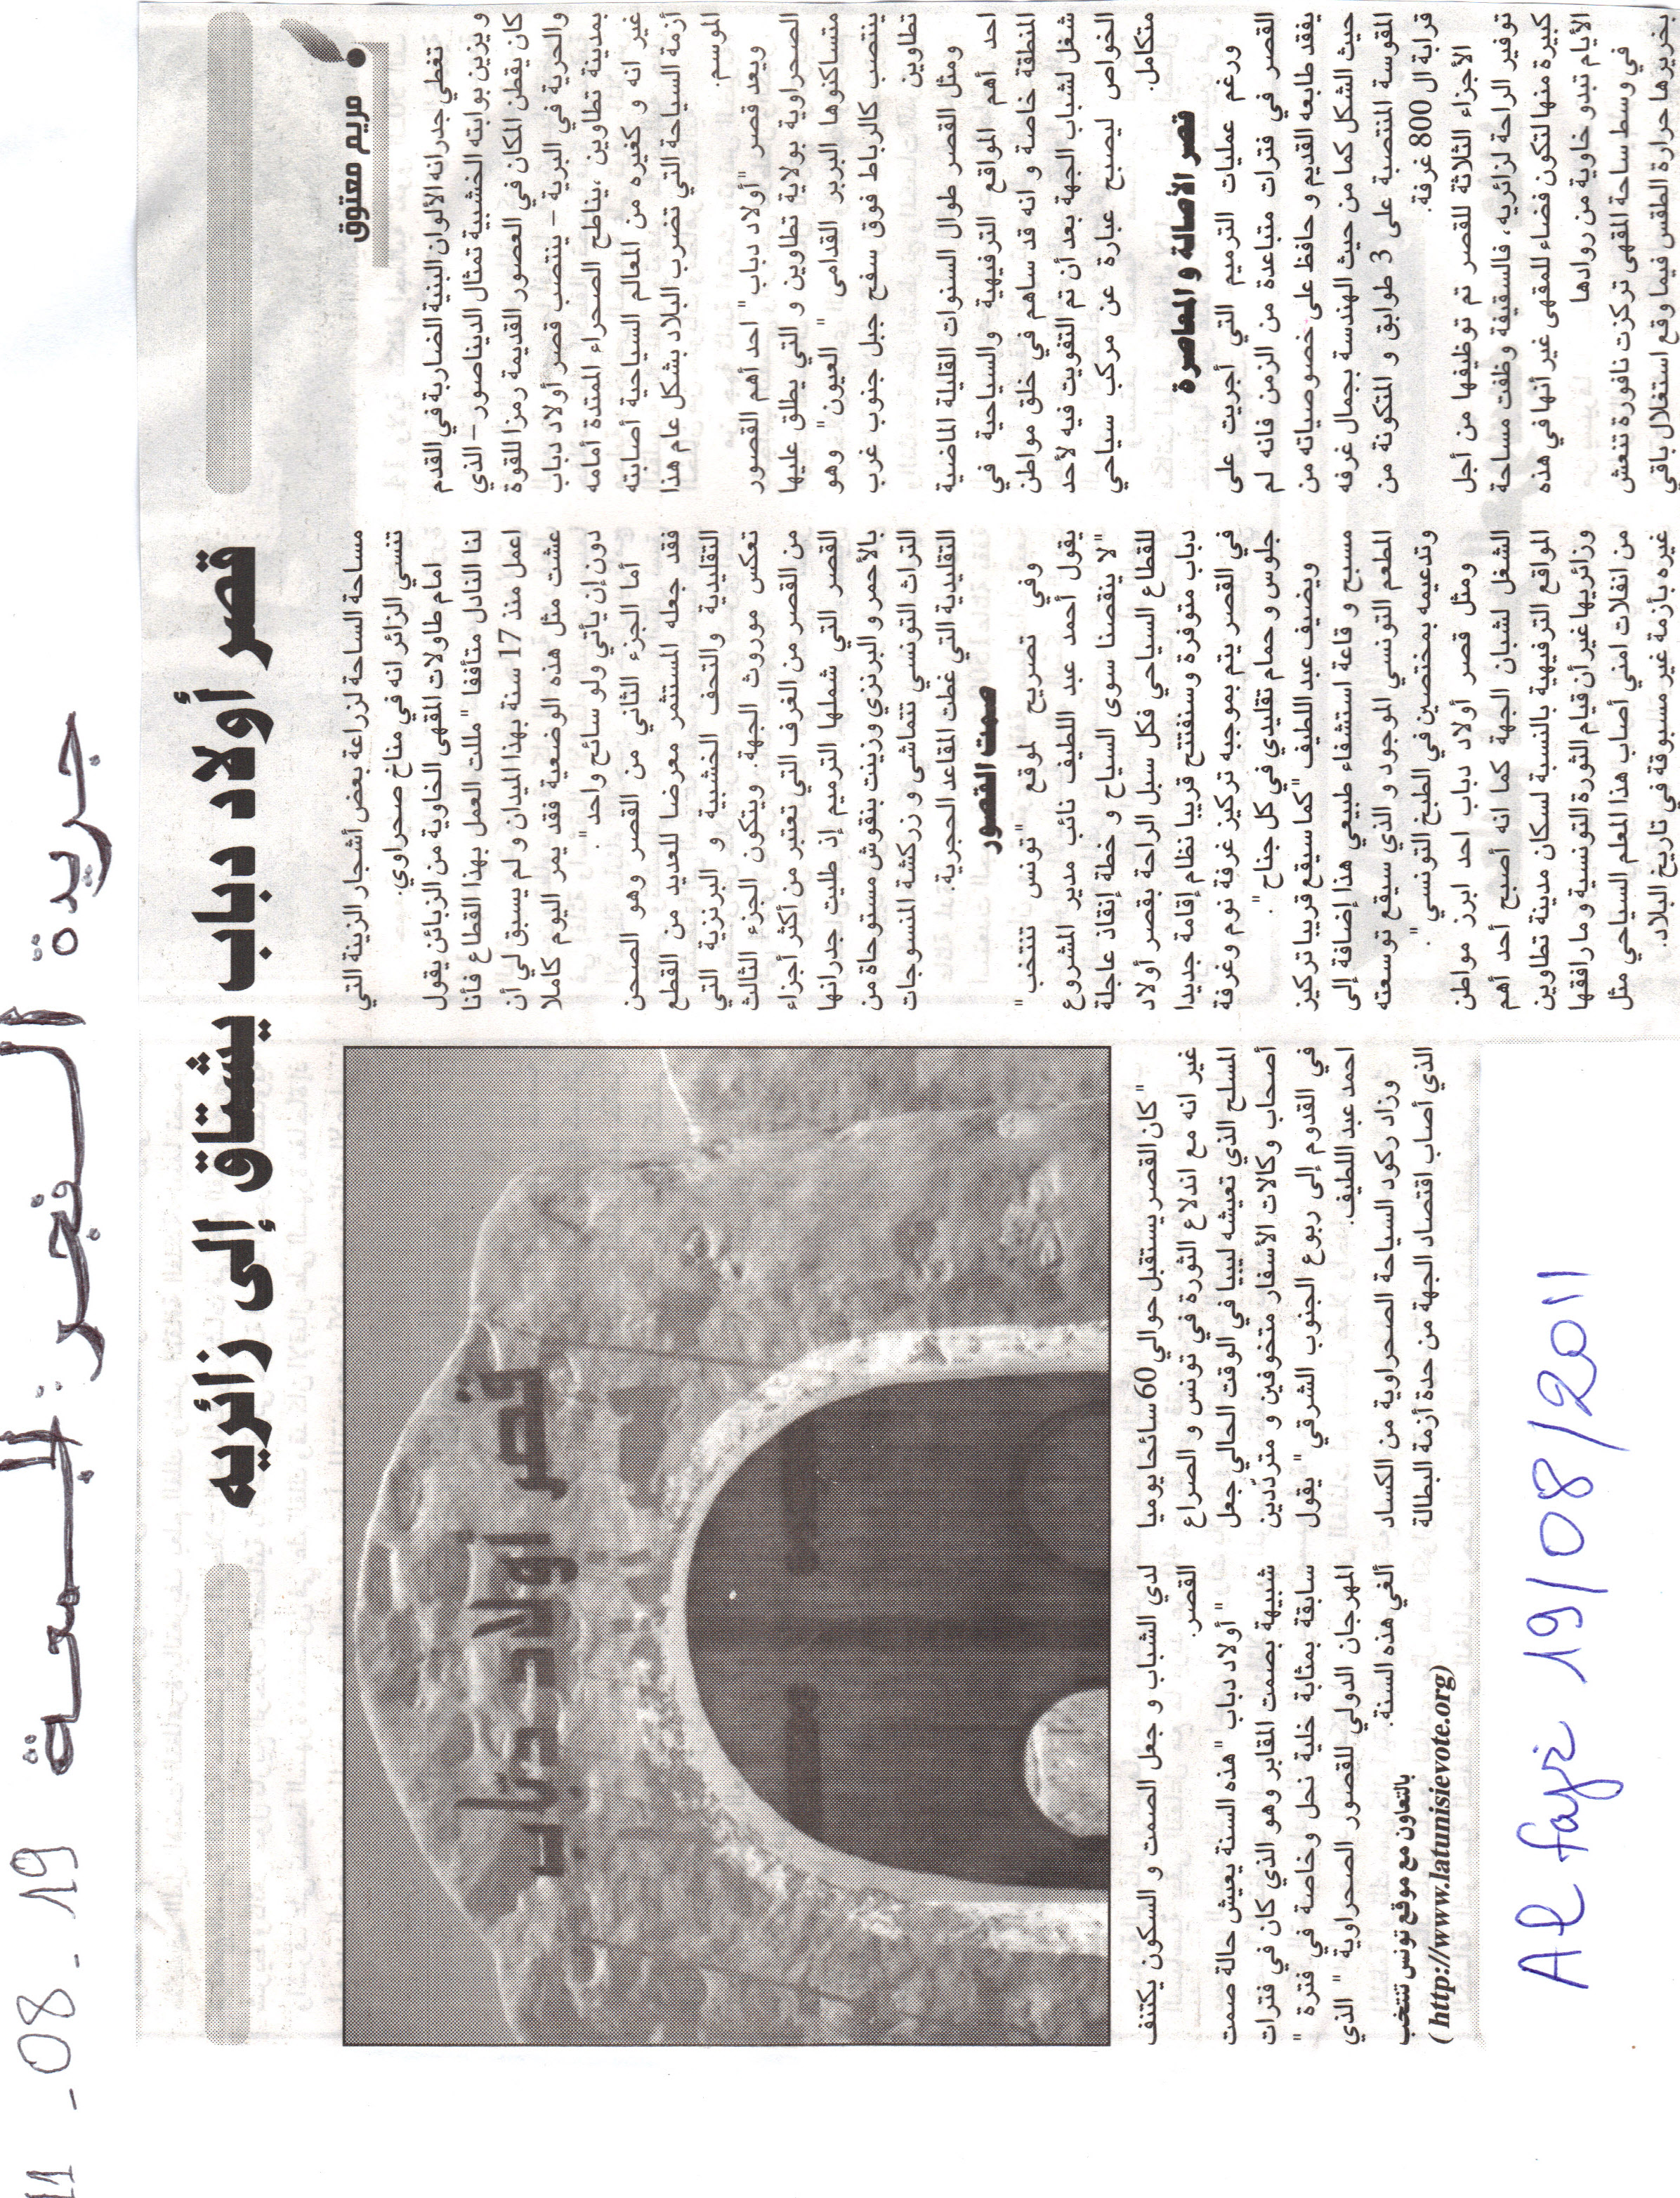 جريدة الفجر: الجمعة 19-08-11
قصر أولاد دباب يشتاق إلى زائريه
مريم معتوق
تغطي جدرانه الألوان البنية الضاربة في القدم
و يزين بوابته الخشبية تمثال الديناصور– الذي
كان يقطن المكان في العصور القديمة رمزا للقوة
والحرية في البرية – ينتصب قصر أولاد دباب
بمدينة تطاوين ،يناطح الصحراء الممتدة أمامه
غير انه و كغيره من المعالم السياحية أصابته
أزمة السياحة التي تضرب البلاد بشكل عام هذا
الموسم.
ويعد قصر "أولاد دباب " احد أهم القصور
الصحراوية بولاية تطاوين و التي يطلق عليها
متساكنوها البربر القدامى " العيون " وهو
ينتصب كالرباط فوق سفح جبل جنوب غرب
تطاوين
ومثل القصر طوال السنوات القليلة الماضية
احد أهم المواقع الترفيهية والسياحية في
المنطقة خاصة و انه قد ساهم في خلق مواطن
شغل لشباب الجهة بعد أن تم التفويت فيه لأحد
الخواص ليصبح عبارة عن مركب سياحي
متكامل.
قصر الأصالة و المعاصرة
ورغم عمليات الترميم التي أجريت على
القصر في فترات متباعدة من الزمن فانه لم
يفقد طابعه القديم و حافظ على خصوصياته من
حيث الشكل كما من حيث الهندسة بجمال غرفه
المقوسة المنتصبة على 3 طوابق و المتكونة من
قرابة ال 800 غرفة.
الأجزاء الثلاثة للقصر تم توظيفها من أجل
توفير الراحة لزائريه، فالسقيفة وظفت مساحة
كبيرة منها لتكون فضاء للمقهى غير أنها في هذه
الأيام تبدو خاوية من روادها
في وسط ساحة المقهى تركزت نافورة تنعش
بخريرها حرارة الطقس فيما وقع استغلال باقي
مساحة الساحة لزراعة بعض أشجار الزينة التي
تنسي الزائر انه في مناخ صحراوي.
امام طاولات المقهى الخاوية من الزبائن يقول
لنا النادل متأففا "مللت العمل بهذا القطاع فأنا
اعمل منذ 17 سنة بهذا الميدان و لم يسبق لي أن
عشت مثل هذه الوضعية فقد يمر اليوم كاملا
دون إن يأتي ولو سائح واحد".
أما الجزء الثاني من القصر وهو الصحن
فقد جعله المستثمر معرضا للعديد من القطع
التقليدية والتحف الخشبية و البرنزية التي
تعكس موروث الجهة. ويتكون الجزء الثالث
من القصر من الغرف التي تعتبر من أكثر أجزاء
القصر التي شملها الترميم إذ طليت جدرانها
بالأحمر و البرنزي وزينت بنقوش مستوحاة من
التراث التونسي تتماشى و زركشة المنسوجات
التقليدية التي غطت المقاعد الحجرية.
صمت القصور
وفي تصريح لموقع "تونس تنتخب "
يقول أحمد عبد اللطيف نائب مدير المشروع
"لا ينقصنا سوى السياح و خطة إنقاذ عاجلة
للقطاع السياحي فكل سبل الراحة بقصر أولاد
دباب متوفرة وسنفتتح قريبا نظام إقامة جديدا
في القصر يتم بموجبه تركيز غرفة نوم وغرفة
جلوس و حمام تقليدي في كل جناح ".
ويضيف عبد اللطيف "كما سيقع قريبا تركيز
مسبح و قاعة استشفاء طبيعي هذا إضافة إلى
المطعم التونسي الموجود و الذي سيقع توسعته
وتدعيمه بمختصين في الطبخ التونسي ".
ومثل قصر أولاد دباب احد ابرز مواطن
الشغل لشبان الجهة كما انه أصبح أحد أهم
المواقع الترفيهية بالنسبة لسكان مدينة تطاوين
وزائريها غير أن قيام الثورة التونسية و ما رافقها
من انفلات امني أصاب هذا المعلم السياحي مثل
غيره بأزمة غير مسبوقة في تاريخ البلاد.
قصر اولاد دباب
"كان القصر يستقبل حوالي 60 سائحا يوميا
غير انه مع اندلاع الثورة في تونس و الصراع
المسلح الذي تعيشه ليبيا في الوقت الحالي جعل
أصحاب وكالات الأسفار متخوفين و متردّدين
في القدوم إلى ربوع الجنوب الشرقي " يقول
احمد عبد اللطيف.
وزاد ركود السياحة الصحراوية من الكساد
الذي أصاب اقتصاد الجهة من حدة أزمة البطالة
لدي الشباب و جعل الصمت و السكون يكتنف
القصر.
" أولاد دباب " هذه السنة يعيش حالة صمت
شبيهة بصمت المقابر وهو الذي كان في فترات
سابقة بمثابة خلية نحل وخاصة في فترة "
المهرجان الدولي للقصور الصحراوية " الذي
ألغي هذه السنة.
بالتعاون مع موقع تونس تنتخب
( http://www.latunisievote.org)
Al fajr 19/08/2011